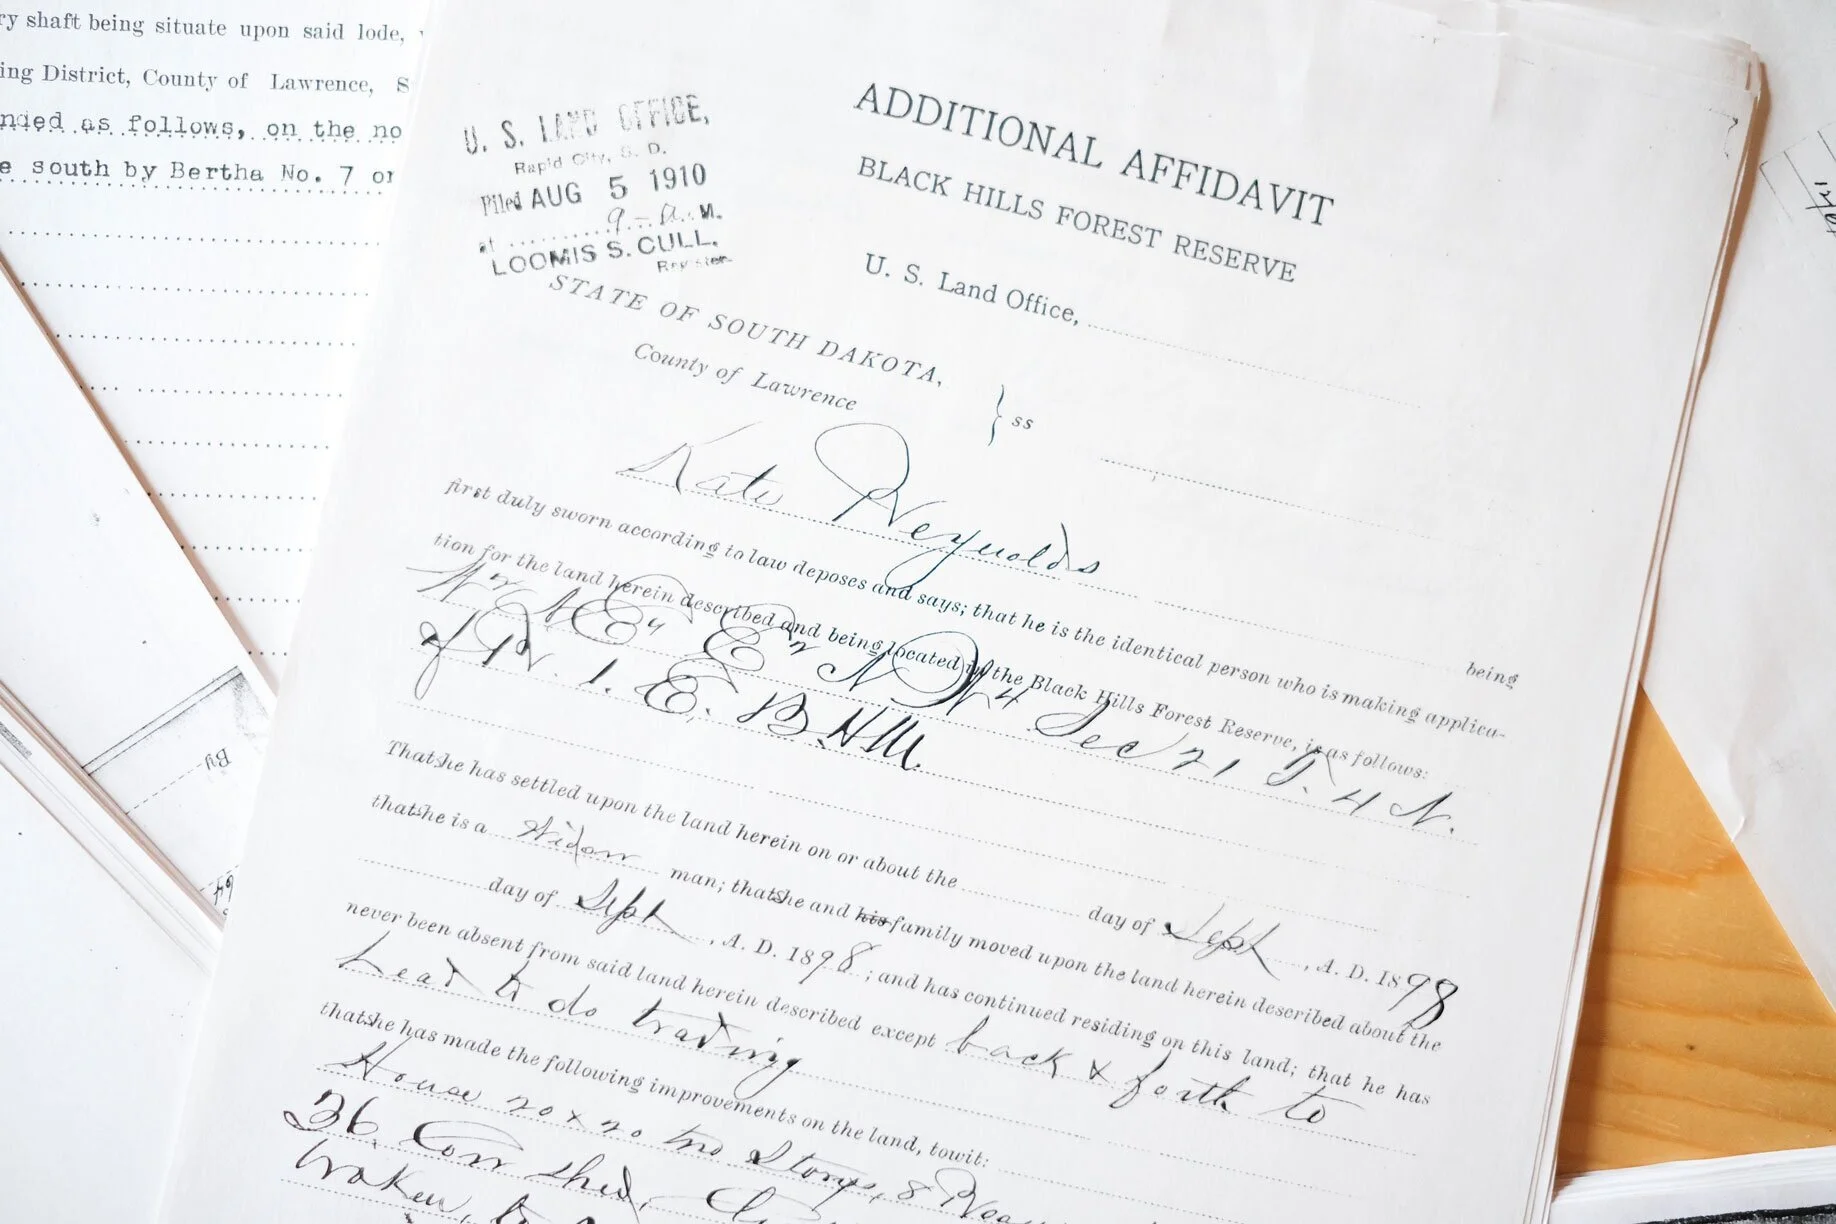 ry shaft being situate upon said lode,
ing District, County of Lawrence, S
nded as follows, on the no
e south by Bertha No. 7 or
U. S. LAND OFFICE,
Rapid City, S. D.
Filed AUG 5 1910
at 9 - A. M.
LOOMIS S. CULL.
Register.
ADDITIONAL AFFIDAVIT
BLACK HILLS FOREST RESERVE
U. S. Land Office,
STATE OF SOUTH DAKOTA,
County of Lawrence
} ss
Kate Reynolds
being
first duly sworn according to law deposes and says; that he is the identical person who is making applica-
tion for the land herein described and being located in the Black Hills Forest Reserve, is as follows:
Sec 21 T. 4 N.
of R. 1. E. B.H.M.
That she has settled upon the land herein on or about the day of Sept, A. D. 1898
that she is a Widow man; that she and his family moved upon the land herein described about the
day of Sept, A. D. 1898; and has continued residing on this land; that he has
never been absent from said land herein described except back & forth to
Lead to do trading
that she has made the following improvements on the land, towit:
House 20 x 20 two Story, 8
36 Corn shed,
broken,
By